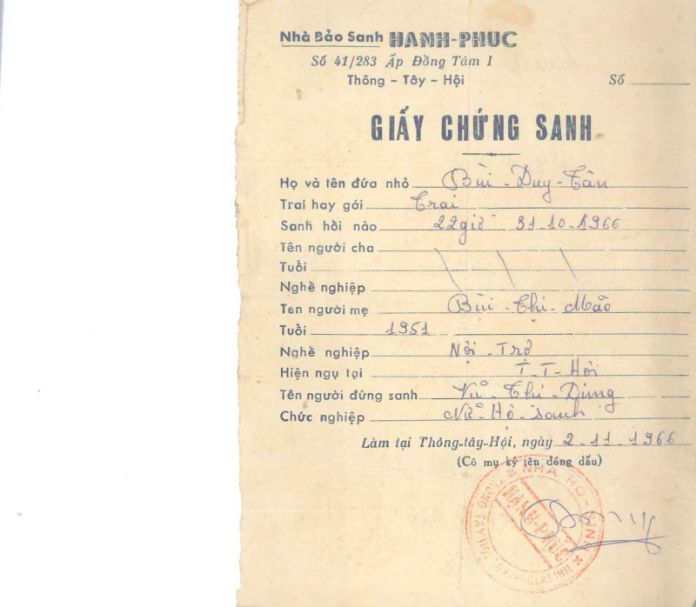 Nhà Bảo Sanh HẠNH-PHUC
Số 41/283 Ấp Đồng Tâm I
Thông - Tây - Hội
Số
GIẤY CHỨNG SANH
Họ và tên đứa nhỏ Bùi - Duy - Tân
Trai hay gái Trai
Sanh hồi nào 22giờ 31-10-1966
Tên người cha
Tuổi
Nghề nghiệp
Tên người mẹ Bùi - Thị - Mão
Tuổi 1951
Nghề nghiệp Nội - Trợ
Hiện ngụ tại T - T - Hội
Tên người đứng sanh Vũ - Thị - Dung
Chức nghiệp Nữ - Hộ - Sanh
Làm tại Thông-tây-Hội, ngày 2-11-1966
(Cô mụ ký tên đóng dấu)
NHÀ HỘ-SINH
HẠNH-PHÚC